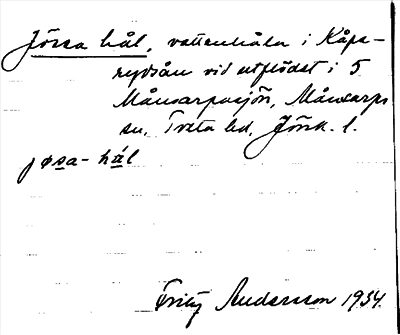 Jössa hål, vattenhåla i Kåpe-
rydsån vid utflödet i S.
Månsarpasjön, Månsarps
sn, Tveta hd, Jönk. l.
jøsa-hål
Fritz Andersson 1934.